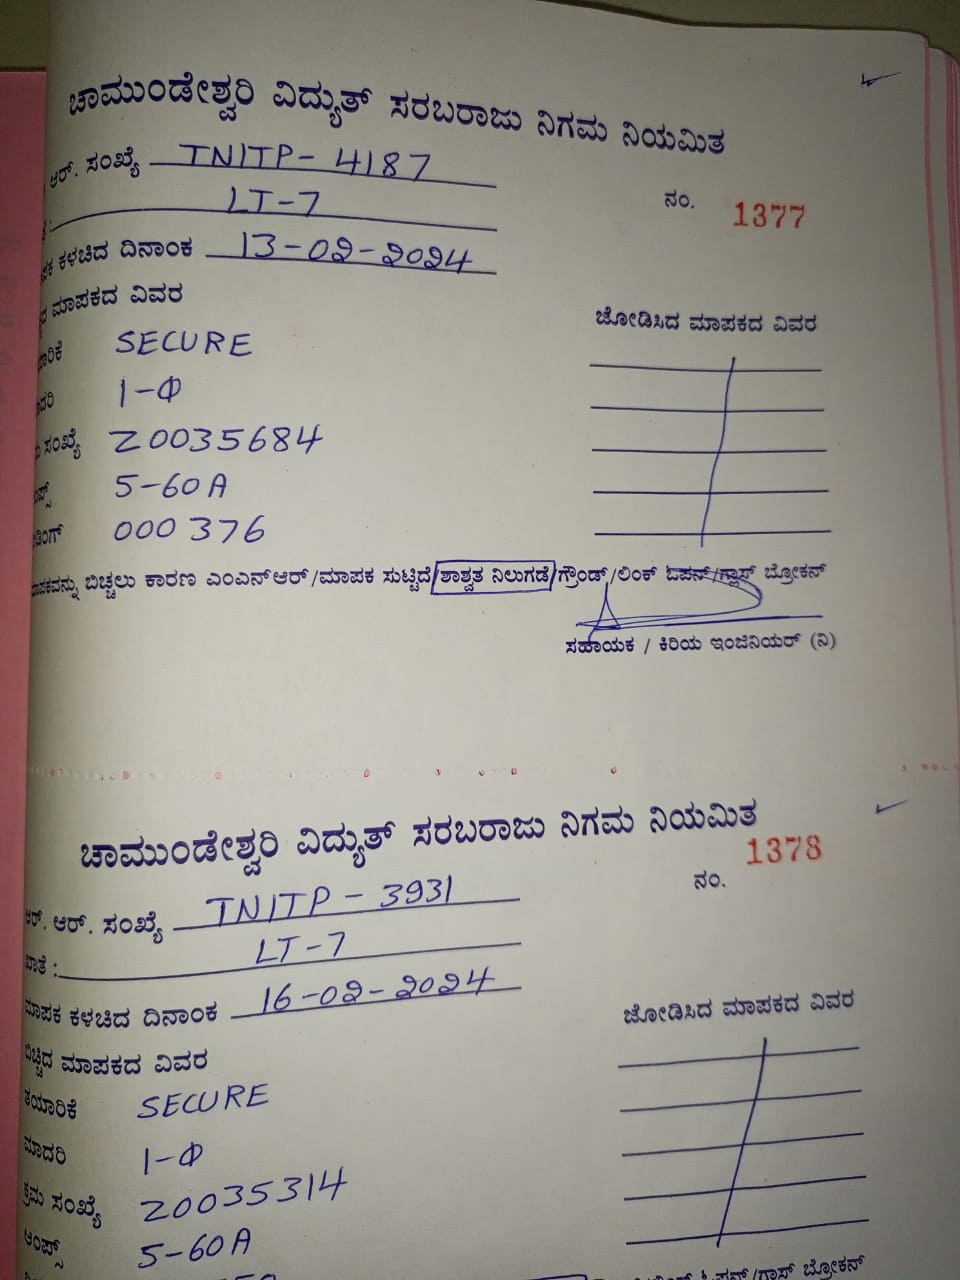 ಚಾಮುಂಡೇಶ್ವರಿ ವಿದ್ಯುತ್ ಸರಬರಾಜು ನಿಗಮ ನಿಯಮಿತ
ಆರ್. ಸಂಖ್ಯೆ TNITP-4187
ನಂ. 1377
LT-7
ಕಳಚಿದ ದಿನಾಂಕ 13-02-2024
ಮಾಪಕದ ವಿವರ
ಜೋಡಿಸಿದ ಮಾಪಕದ ವಿವರ
SECURE
1-Φ
ಸಂಖ್ಯೆ 20035684
5-60A
000376
ಬಿಚ್ಚಲು ಕಾರಣ ಎಂಎನ್ಆರ್/ಮಾಪಕ ಸುಟ್ಟಿದೆ/ಶಾಶ್ವತ ನಿಲುಗಡೆ/ಗ್ರೌಂಡ್/ಲಿಂಕ್ ಓಪನ್/ಗ್ಲಾಸ್ ಬ್ರೋಕನ್
ಸಹಾಯಕ / ಕಿರಿಯ ಇಂಜಿನಿಯರ್ (ನಿ)
ಚಾಮುಂಡೇಶ್ವರಿ ವಿದ್ಯುತ್ ಸರಬರಾಜು ನಿಗಮ ನಿಯಮಿತ
ನಂ. 1378
ಆರ್. ಆರ್. ಸಂಖ್ಯೆ TNITP-3931
LT-7
ಮಾಪಕ ಕಳಚಿದ ದಿನಾಂಕ 16-02-2024
ಬಿಚ್ಚಿದ ಮಾಪಕದ ವಿವರ
ಜೋಡಿಸಿದ ಮಾಪಕದ ವಿವರ
ತಯಾರಿಕೆ SECURE
ಮಾದರಿ 1-Φ
ಕ್ರಮ ಸಂಖ್ಯೆ 20035314
ಆಂಪ್ಸ್ 5-60A
ಓಪನ್/ಗ್ಲಾಸ್ ಬ್ರೋಕನ್